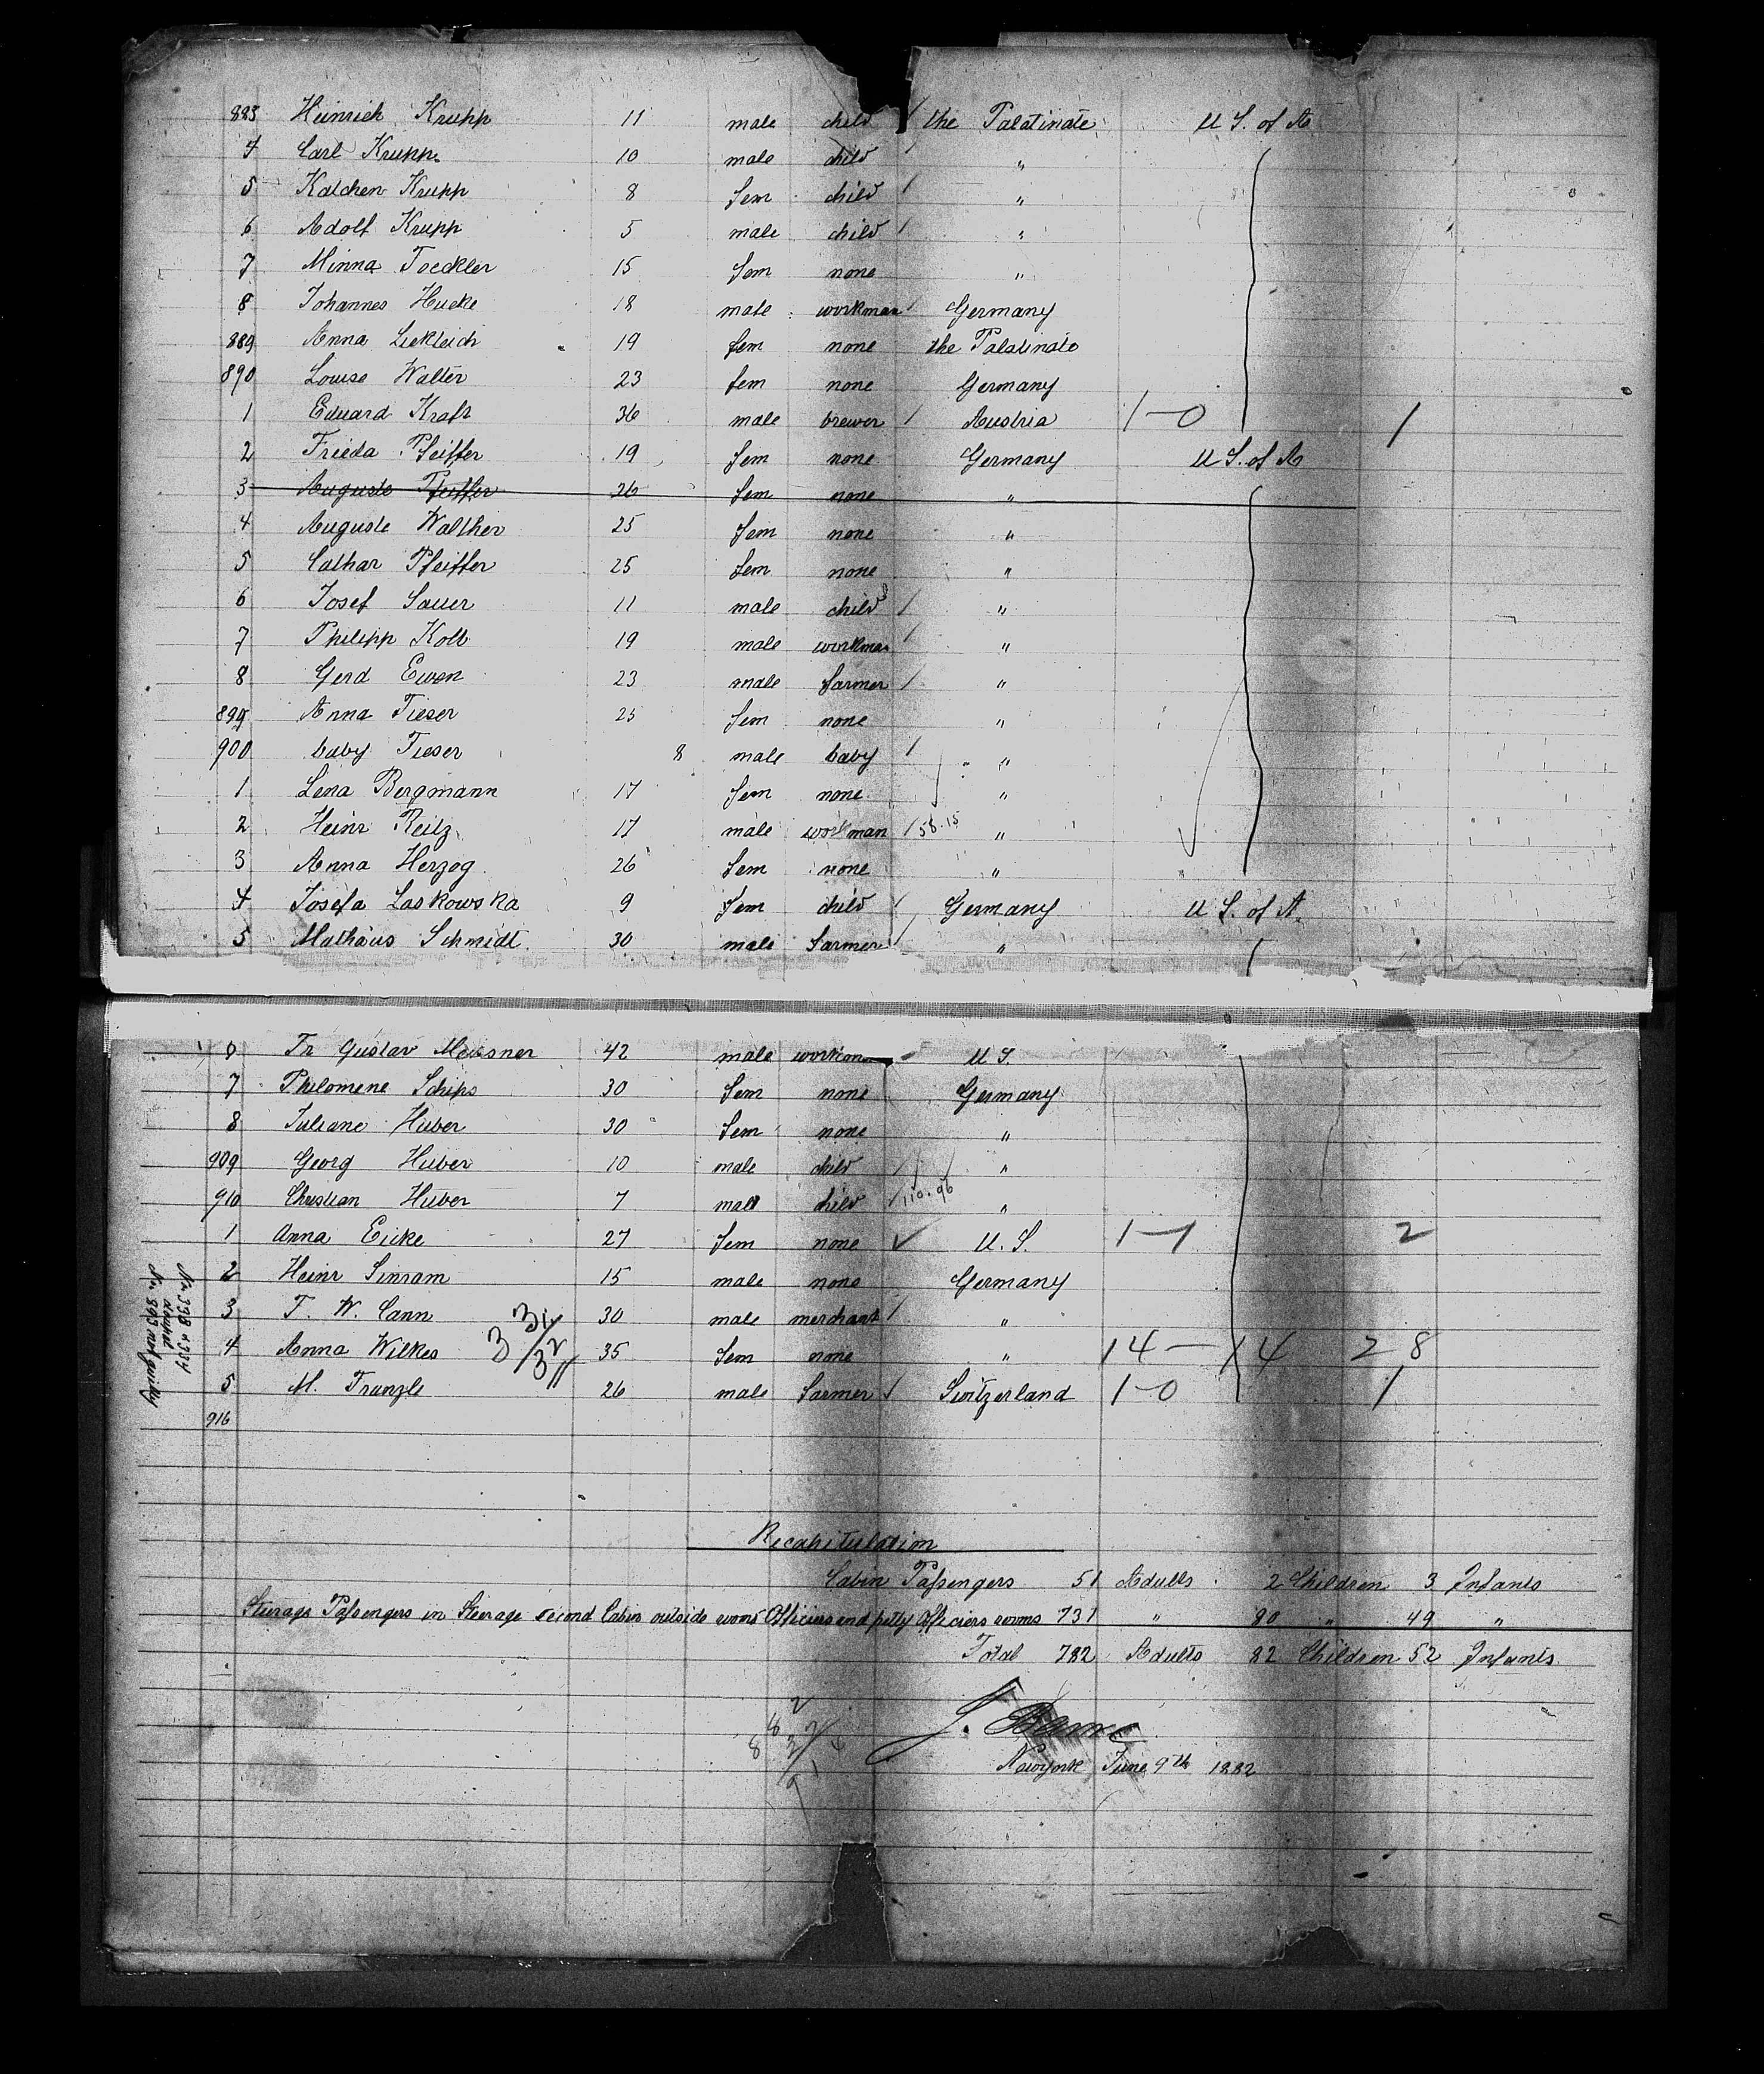 883 Heinrich Krupp 11 male child / the Palatinate U S. of A
4 Carl Krupp 10 male child / "
5 Katchen Krupp 8 fem child / "
6 Adolf Krupp 5 male child / "
7 Minna Toeckler 15 fem none "
8 Johannes Hucke 18 male workman / Germany
889 Anna 19 fem none the Palatinate
890 Louise Walter 23 fem none Germany
1 Eduard Kraft 36 male brewer / Austria 1-0 1
2 Frieda Pfeiffer 19 fem none Germany U S. of A
3 Auguste Pfeiffer 26 fem none "
4 Auguste Walther 25 fem none "
5 Cathar Pfeiffer 25 fem none "
6 Josef Sauer 11 male child / "
7 Philipp Kolb 19 male workman / "
8 Gerd Ewen 23 male farmer / "
899 Anna Tieser 25 fem none "
900 baby Tieser 8 male baby / "
1 Lena Bergmann 17 fem none "
2 Heinr Reitz 17 male workman / 58.15 "
3 Anna Herzog 26 fem none "
4 Josefa Laskowska 9 fem child / Germany U S. of A.
5 Mathäus Schmidt 30 male farmer / "
6 Fr Gustav Meissner 42 male workman U S.
7 Philomene Schips 30 fem none Germany
8 Juliane Huber 30 fem none "
909 Georg Huber 10 male child / "
910 Christian Huber 7 male child / 110.96 "
1 Anna Eicke 27 fem none ✓ U. S. 1-1 2
2 Heinr Sinram 15 male none Germany
3 T. W. Cann 30 male merchant / "
4 Anna Wilkes 35 fem none " 14 - 14 28
5 M. Franzle 26 male farmer / Switzerland 1-0 1
916
Recapitulation
Cabin Passengers 51 Adults 2 Children 3 Infants
Steerage Passengers in Steerage second Cabin outside rooms Officiers and petty Officiers rooms 731 " 80 " 49 "
Total 782 Adults 82 Children 52 Infants
Newyork June 9th 1882